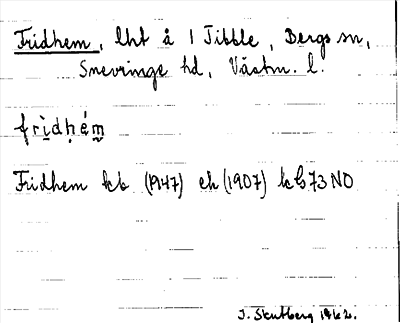 Fridhem, lht å 1 Tibble, Bergs sn,
Snevringe hd, Västm. l.
frìdḥém
Fridhem kb (1947) ek (1907) kG73NO
J. Skutberg 1962.